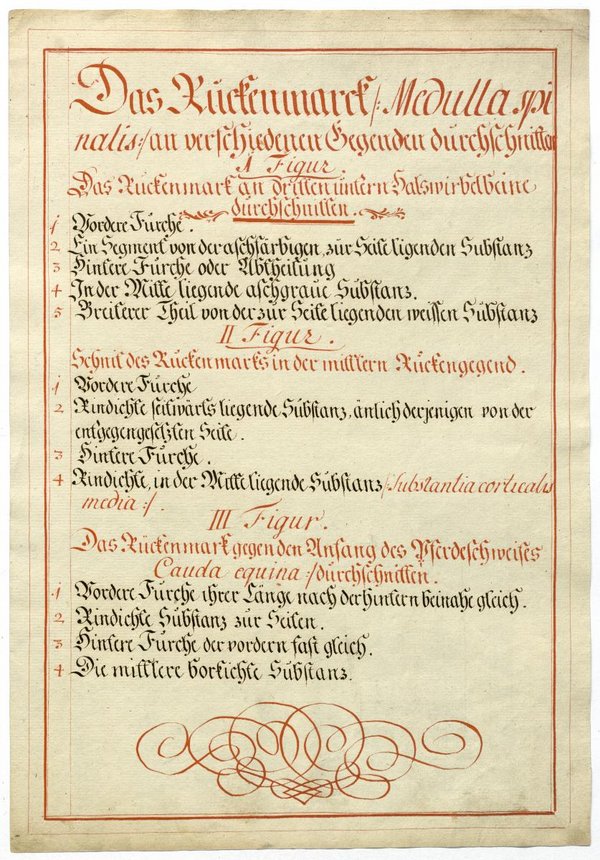 Das Rückenmarck /: Medulla spi
nalis :/ an verschiedenen Gegenden durchschnitten
I Figur.
Das Rückenmark an dritten untern Halswirbelbeine
durchschnitten.
1 Vordere Fürche.
2 Ein Segment von der aschfärbigen, zur Seite ligenden Substanz
3 Hintere Fürche oder Abtheilung
4 In der Mitte liegende aschgraue Substanz.
5 Breiterer Theil von der zur Seite liegenden weissen Substanz
II Figur.
Schnit des Rückenmarks in der mittlern Rückengegend.
1 Vordere Fürche
2 Rindichte seitwärts liegende Substanz, änlich derjenigen von der
entgegengesetzten Seite.
3 Hintere Fürche.
4 Rindichte, in der Mitte liegende Substanz /: Substantia corticalis
media :/.
III Figur.
Das Rückenmark gegen den Anfang des Pferdeschweifes
Cauda equina :/ durchschnitten.
1 Vordere Fürche ihrer Länge nach der hintern beinahe gleich.
2 Rindichte Substanz zur Seiten.
3 Hintere Fürche der vordern fast gleich.
4 Die mittlere borkichte Substanz.